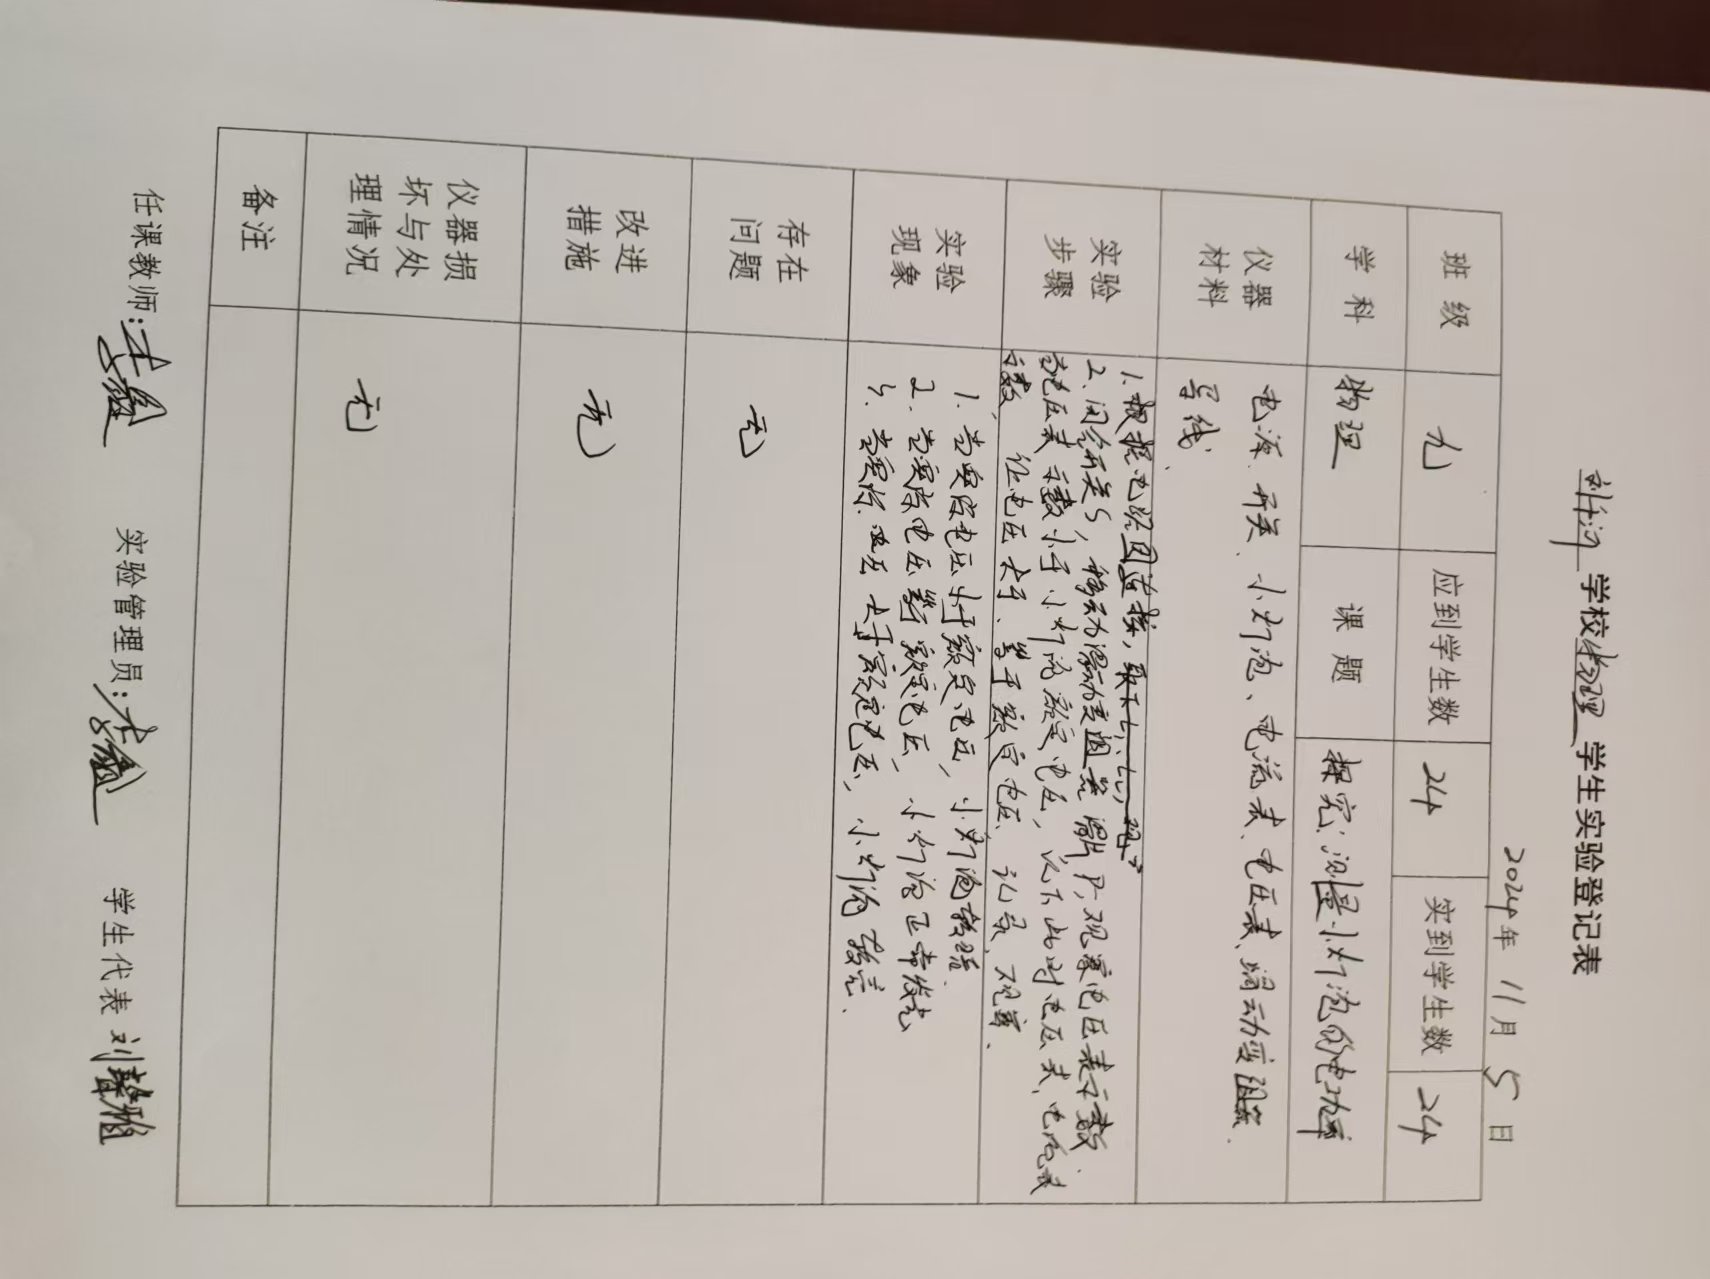 学校物理学生实验登记表
2024年 11月 5日
班级 九 应到学生数 24 实到学生数 24
学科 物理 课题 探究:测量小灯泡的电功率
仪器材料 电源、开关、小灯泡、电流表、电压表、滑动变阻器、
导线.
实验步骤 1.根据电路图连接,
2.闭合开关S,移动滑动变阻器滑片P,观察电压表示数.
电压表示数小于小灯泡额定电压,记下此时电压表、电流表
示数 让电压大于、等于额定电压、记录、观察.
实验现象 1.当实际电压小于额定电压,小灯泡较暗.
2.当实际电压等于额定电压,小灯泡正常发光
3.当实际电压大于额定电压,小灯泡较亮.
存在问题 无
改进措施 无
仪器损坏与处理情况 无
备注
任课教师: 实验管理员: 学生代表 刘馨雅